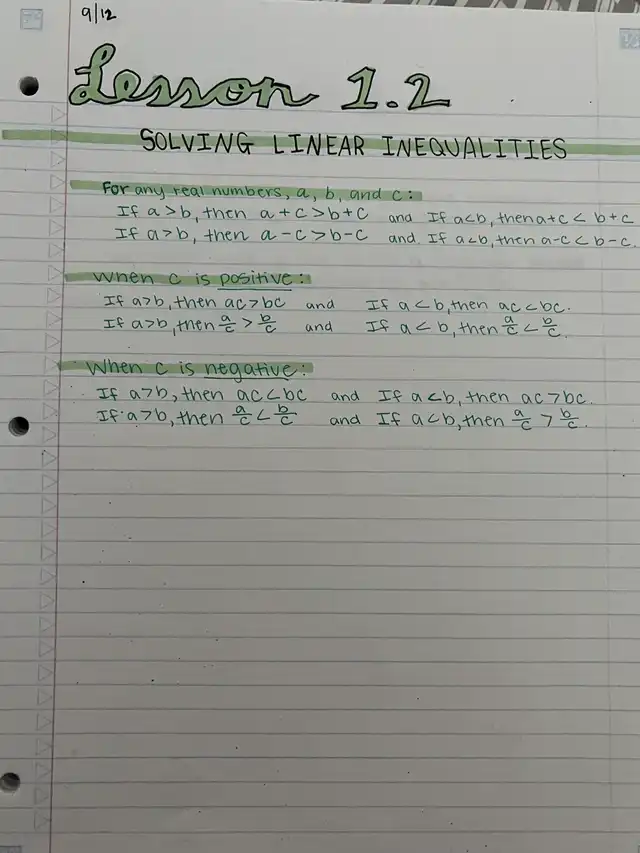 9/12
Lesson 1.2
SOLVING LINEAR INEQUALITIES
For any real numbers, a, b, and c:
If a > b, then a + c > b + c and If a < b, then a + c < b + c
If a > b, then a - c > b - c and If a < b, then a - c < b - c.
When c is positive:
If a > b, then ac > bc and If a < b, then ac < bc.
If a > b, then a/c > b/c and If a < b, then a/c < b/c.
When c is negative:
If a > b, then ac < bc and If a < b, then ac > bc.
If a > b, then a/c < b/c and If a < b, then a/c > b/c.